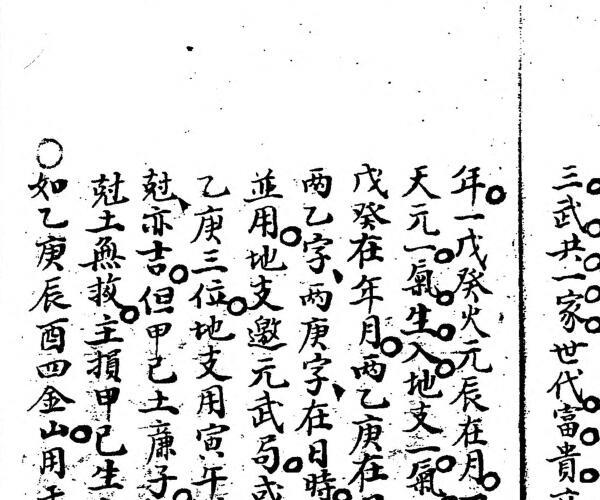 三武共一家世代富貴
年一戊癸火元辰在月
天元一氣生入地支一氣
戊癸在年月两乙庚在
两乙字、两庚字、在日時
並用地支邀元武局或
乙庚三位地支用寅午
尅、亦吉但甲己土廉子
尅土無救主損甲己生
○如乙庚辰酉四金山用